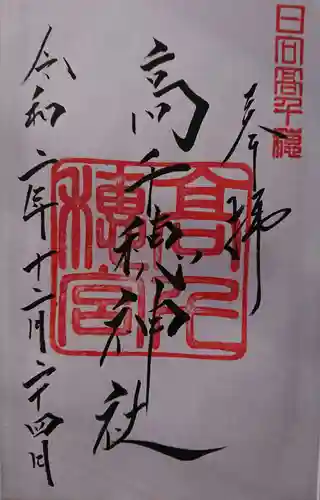 日向高千穂
奉拝
高千穂神社
令和二年十二月二十四日